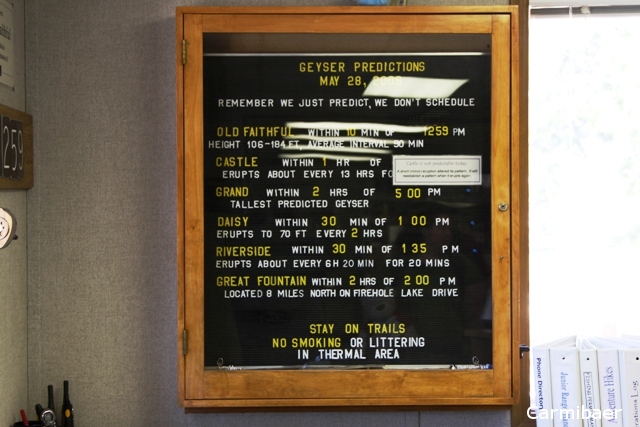 GEYSER PREDICTIONS
MAY 28, 2009
REMEMBER WE JUST PREDICT, WE DON'T SCHEDULE
OLD FAITHFUL WITHIN 10 MIN OF 1259 PM
HEIGHT 106-184 FT, AVERAGE INTERVAL 90 MIN
CASTLE WITHIN 1 HR OF
ERUPTS ABOUT EVERY 13 HRS
Castle is not predictable today.
GRAND WITHIN 2 HRS OF 5 00 PM
TALLEST PREDICTED GEYSER
DAISY WITHIN 30 MIN OF 1 00 PM
ERUPTS TO 70 FT EVERY 2 HRS
RIVERSIDE WITHIN 30 MIN OF 1 35 PM
ERUPTS ABOUT EVERY 6H 20 MIN FOR 20 MINS
GREAT FOUNTAIN WITHIN 2 HRS OF 2 00 PM
LOCATED 8 MILES NORTH ON FIREHOLE LAKE DRIVE
STAY ON TRAILS
NO SMOKING OR LITTERING
IN THERMAL AREA
259
Phone Directory
Junior Ranger
Adventure Hikes
Carmibaer